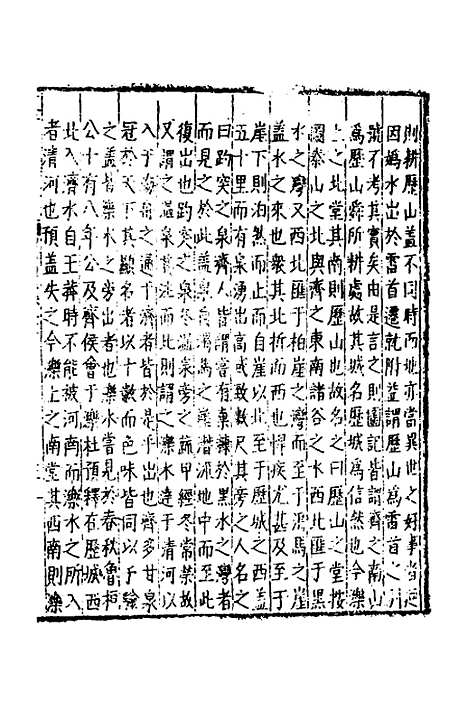 則耕歷山蓋不同時而地亦當異世之好事者
因媯水出於雷首遷就附益謂歷山為雷首之
號不考其實矣由是言之則圖記皆謂齊之南山
為歷山舜所耕處故其城名歷城為信然也今濼
上之北堂其南則歷山也故名之曰歷山之堂按
圖泰山之北與齊之東南諸谷之水西北匯于黑
水之灣又西北匯于柏崖之灣而至于渴馬之崖
蓋水之來也眾其北折而西也悍疾尤甚及至于
崖下則泊然而止而自崖以北至于歷城之西蓋
五十里而有泉湧出高或致數尺其旁之人名之
曰趵突之泉齊人皆謂嘗有棄糠於黑水之灣者
而見之於此蓋泉自渴馬之崖潛流地中而至此
復出也趵突之泉冬溫泉旁之蔬甲經冬常榮故
又謂之溫泉其注而北則謂之濼水達于清河以
入于海舟之通于濟者皆於是乎出也齊多甘泉
冠於天下其顯名者以十數而色味皆同以予驗
之蓋皆濼水之旁出者也濼水嘗見於春秋魯桓
公十有八年公及齊侯會于濼杜預釋在歷城西
北入濟水自王莽時不能被河南而濼水之所入
者清河也預蓋失之今濼上之南堂其西南則濼